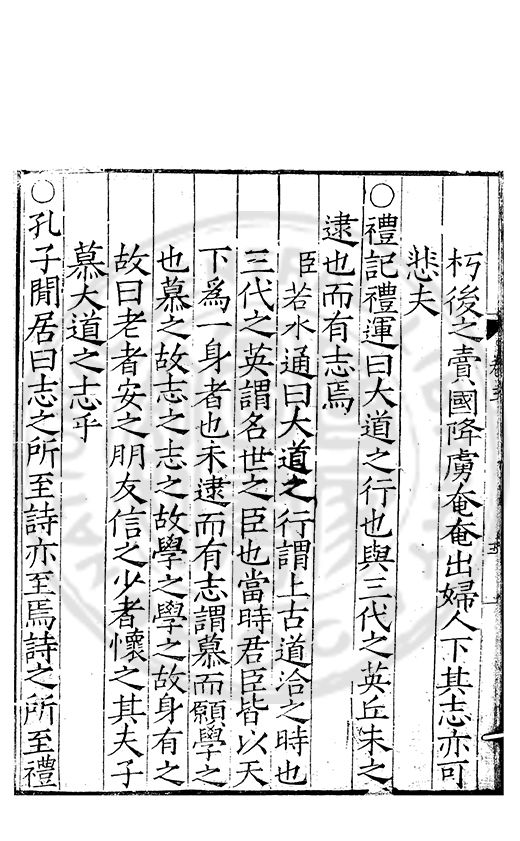 朽後之賣國降虜奄奄出婦人下其志亦可
悲夫
○禮記禮運曰大道之行也與三代之英丘未之
逮也而有志焉
臣若水通曰大道之行謂上古道洽之時也
三代之英謂名世之臣也當時君臣皆以天
下爲一身者也未逮而有志謂慕而願學之
也慕之故志之志之故學之學之故身有之
故曰老者安之朋友信之少者懷之其夫子
慕大道之志乎
○孔子閒居曰志之所至詩亦至焉詩之所至禮